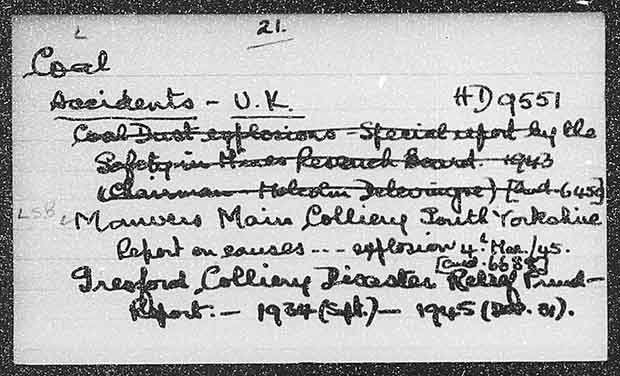 L
21.
Coal
Accidents - U.K. HD 9551
Coal Dust explosions Special report by the
Safety in Mines Research Board. 1943
(Chairman Malcolm Delevingne) [Cmd. 6450]
LSB L Manvers Main Colliery South Yorkshire
Report on causes --- explosion 4th Mar./45.
[Cmd. 668
Gresford Colliery Disaster Relief Fund -
Report. - 1934 (Sept.) - 1945 (Dec. 31).